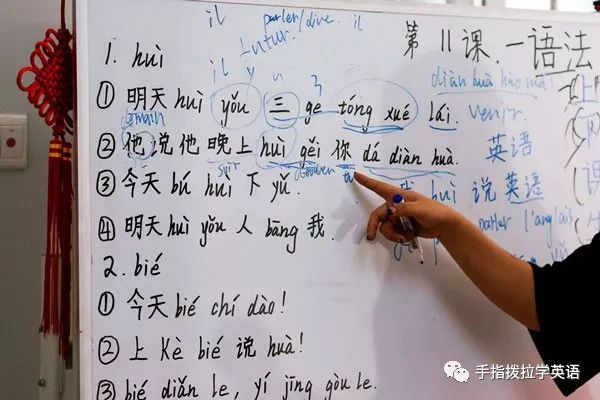 il parler/dire. il
futur.
第11课.一语法
il y
diàn huà hào mǎ
1. huì
① 明天 huì yǒu 三 ge tóng xué lái. venir
demain
② 他说他晚上 huì gěi 你 dá diàn huà. 英语
soir
③ 今天 bú huì 下 yǔ.
huì 说英语
④ 明天 huì yǒu 人 bāng 我.
parler l'anglais
2. bié
① 今天 bié chí dào!
② 上 Kè bié 说 huà!
③ bié diǎn le, yí jīng gòu le.
手指拨拉学英语